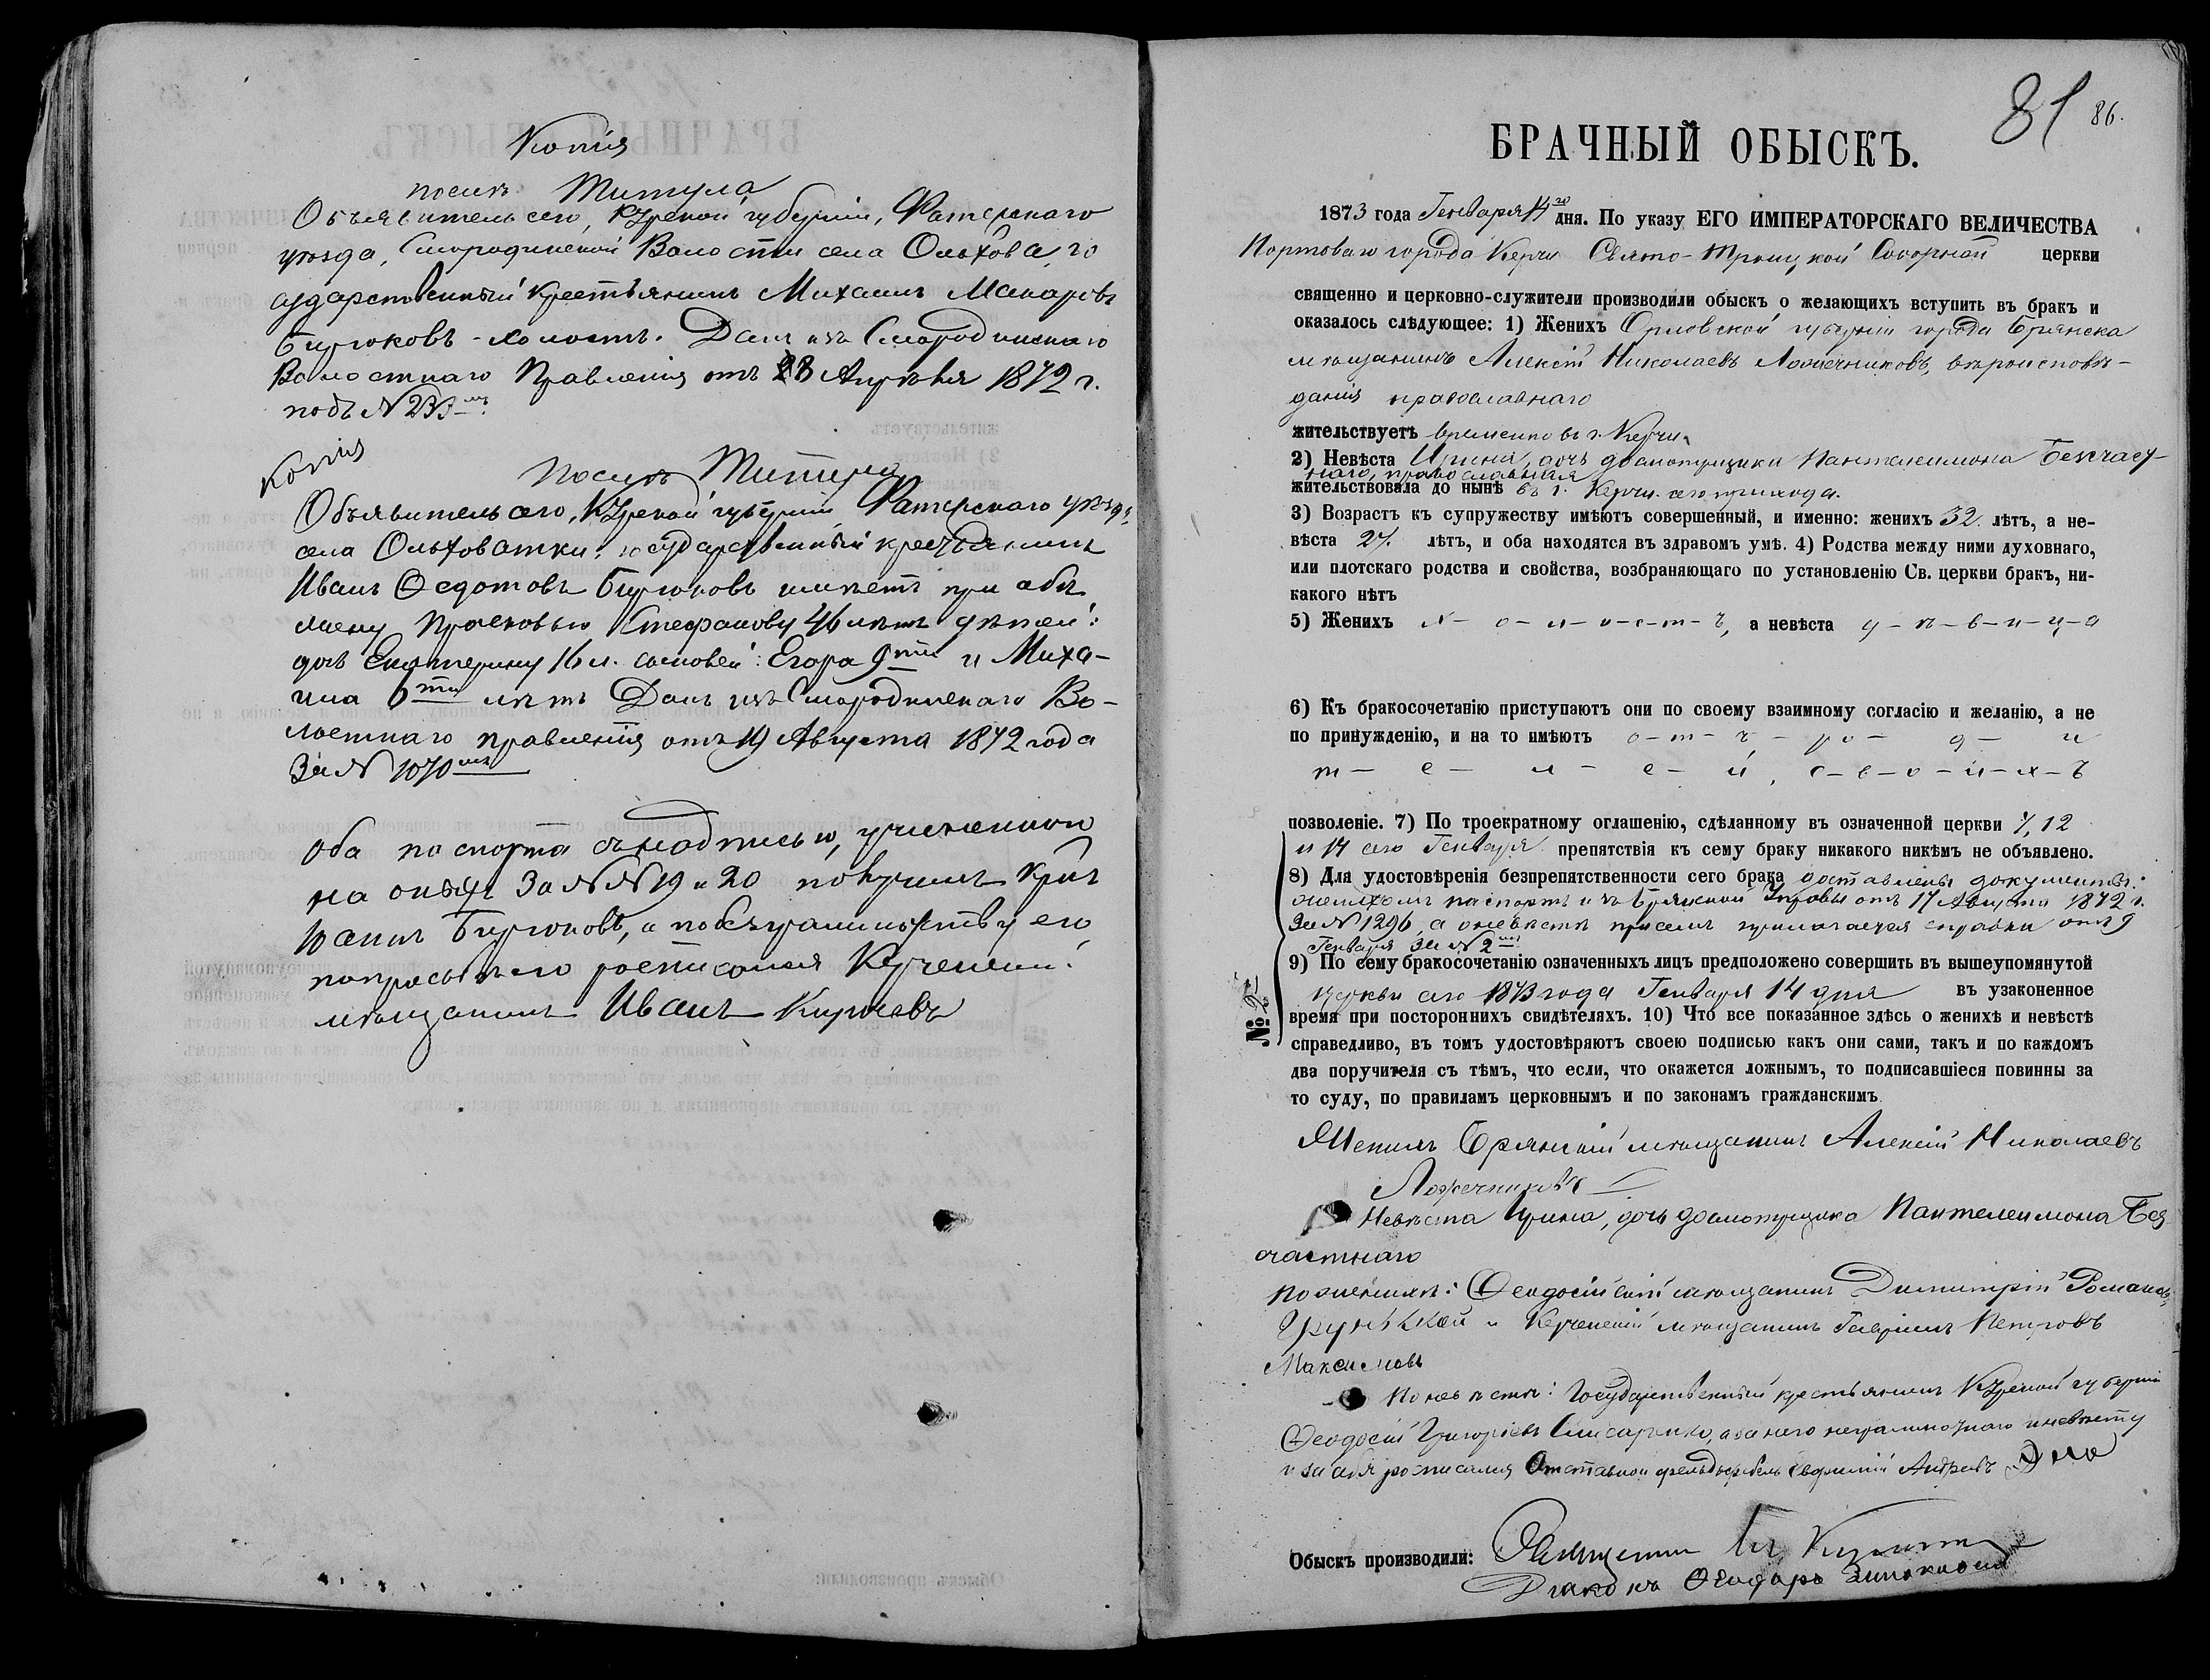 Копія
послѣ Титула
Объявитель сего, Курской губерніи, Фатежскаго
уѣзда, Смородинской Волости села Ольхова, го
сударственный крестьянинъ Михаилъ Макаровъ
Бирюковъ - холостъ. Данъ изъ Смородинскаго
Волостнаго Правленія отъ 28 Апрѣля 1872 г.
подъ №
Копія
Послѣ Титула
Объявитель сего, Курской губерніи Фатежскаго уѣзда,
села Ольховатки, государственный крестьянинъ
Иванъ Ѳедотовъ Бирюковъ имѣетъ при себѣ
жену Прасковью Стефанову 46 лѣтъ дѣтей:
дочь Екатерину 16 л. сыновей: Егора 9ти и Миха-
ила 6ти лѣтъ Данъ изъ Смородинскаго Во-
лостнаго правленія отъ 19 Августа 1872 года
За № 1070мъ
Оба паспорта съ надписью, учиненною
на оныхъ За №№ 19 и 20 получилъ
Бирюковъ, а по безграмотству его
по просьбѣ его росписался Керченскій
мѣщанинъ Иванъ Киріевъ
81 86.
БРАЧНЫЙ ОБЫСКЪ.
1873 года Генваря 14го дня. По указу ЕГО ИМПЕРАТОРСКАГО ВЕЛИЧЕСТВА
Портоваго города Керчи Свято-Троицкой Соборной церкви
священно и церковно-служители производили обыскъ о желающихъ вступить въ бракъ и
оказалось слѣдующее: 1) Женихъ Орловской губерніи города Брянска
мѣщанинъ Алексій Николаевъ Ложечниковъ, вѣроисповѣ-
данія православнаго
жительствуетъ временно въ г. Керчи.
2) Невѣста Ирина, дочь досмотрщика Пантелеимона Безчаст-
наго, православная
жительствовала до нынѣ въ г. Керчи. сего прихода.
3) Возрастъ къ супружеству имѣютъ совершенный, и именно: женихъ 32 лѣтъ, а не-
вѣста 27. лѣтъ, и оба находятся въ здравомъ умѣ. 4) Родства между ними духовнаго,
или плотскаго родства и свойства, возбраняющаго по установленію Св. церкви бракъ, ни-
какого нѣтъ
5) Женихъ х - о - л - о - с - т - ъ, а невѣста д - ѣ - в - и - ц - а
6) Къ бракосочетанію приступаютъ они по своему взаимному согласію и желанію, а не
по принужденію, и на то имѣютъ о - т - ъ - ро - д - и
т - е - л - е - й, с - в - о - и - х - ъ
позволеніе. 7) По троекратному оглашенію, сдѣланному въ означенной церкви 7, 12
и 14 сего Генваря препятствія къ сему браку никакого никѣмъ не объявлено.
8) Для удостовѣренія безпрепятственности сего брака доставлены документы:
женихомъ паспортъ изъ Брянской Управы отъ 17 Августа 1872 г.
За № 1296, а о невѣстѣ при семъ прилагается справка отъ 9
Генваря за № 2мъ
9) По сему бракосочетанію означенныхъ лицъ предположено совершить въ вышеупомянутой
церкви сего 1873 года Генваря 14 дня въ узаконенное
№ 2
время при постороннихъ свидѣтеляхъ. 10) Что все показанное здѣсь о женихѣ и невѣстѣ
справедливо, въ томъ удостовѣряютъ своею подписью какъ они сами, такъ и по каждомъ
два поручителя съ тѣмъ, что если, что окажется ложнымъ, то подписавшіеся повинны за
то суду, по правиламъ церковнымъ и по законамъ гражданскимъ
Женихъ Брянскій мѣщанинъ Алексій Николаевъ
Ложечниковъ
Невѣста Ирина, дочь досмотрщика Пантелеимона Без
частнаго
По женихѣ: Ѳеодосійскій мѣщанинъ Димитрій Романовъ
и Керченскій мѣщанинъ Гавріилъ Петровъ
Максимовъ
По невѣстѣ: Государственный крестьянинъ Курской губерніи
Ѳеодосій Григорьевъ а за него неграмотнаго и невѣсту
и за себя росписался Отставной фельдфебель Андреевъ
Обыскъ производили: Священникъ
Діаконъ Ѳеодоръ